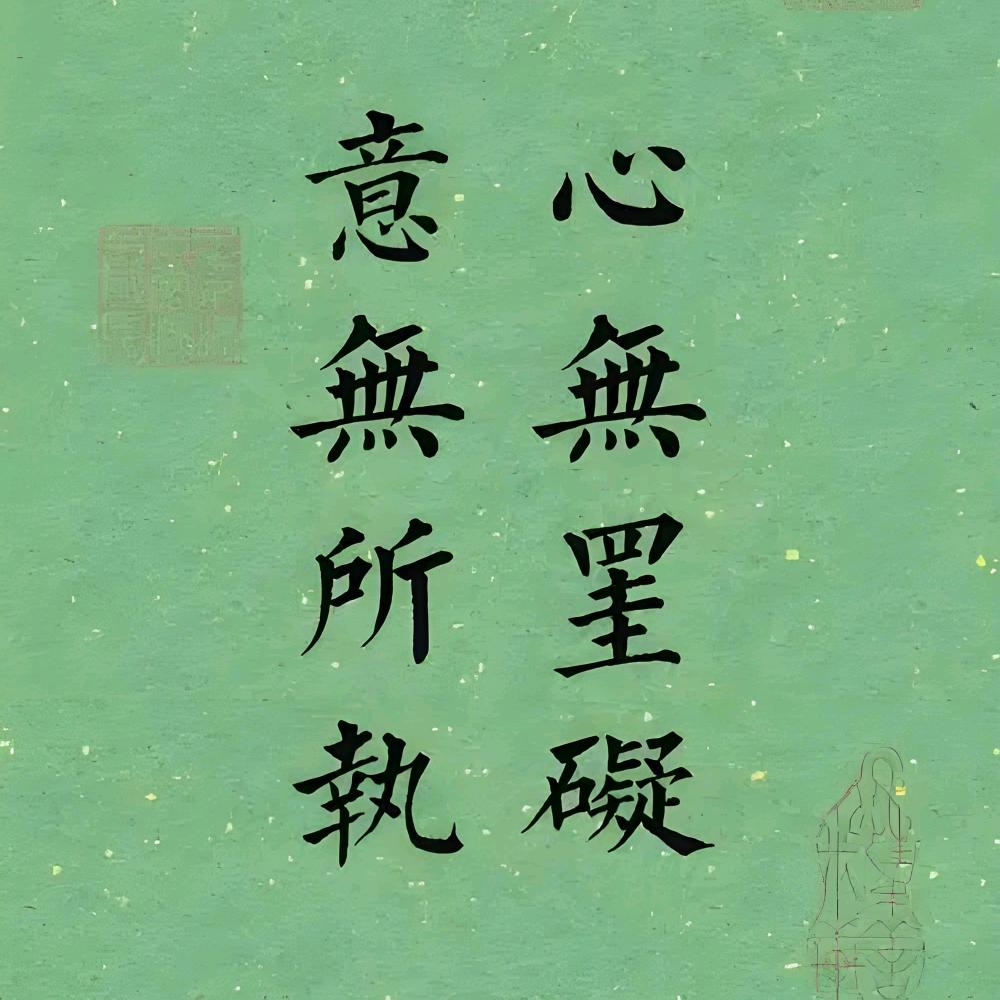 心無罣礙
意無所執